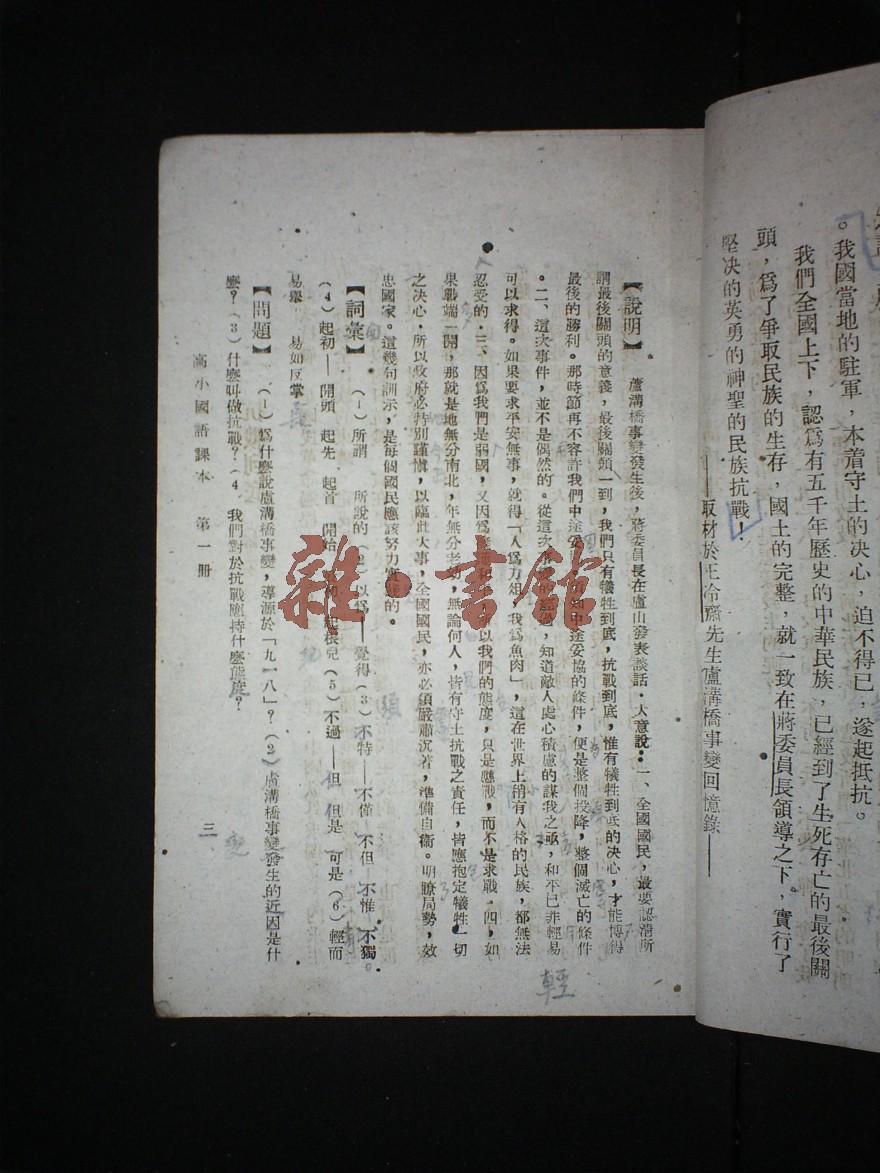 。我國當地的駐軍，本着守土的决心，迫不得已，遂起抵抗。
我們全國上下，認爲有五千年歷史的中華民族，已經到了生死存亡的最後關
頭，爲了爭取民族的生存，國土的完整，就一致在蔣委員長領導之下，實行了
堅决的英勇的神聖的民族抗戰！
——取材於王冷齋先生盧溝橋事變回憶錄——
【說明】 盧溝橋事變發生後，蔣委員長在盧山發表談話．大意說：一、全國國民，最要認清所
謂最後關頭的意義，最後關頭一到，我們只有犧牲到底，抗戰到底，惟有犧牲到底的决心，才能博得
最後的勝利。那時節再不容許我們中途妥協，須知中途妥協的條件，便是整個投降，整個滅亡的條件
。二、這次事件，並不是偶然的。從這次事件的經過，知道敵人處心積慮的謀我之亟，和平已非輕易
可以求得。如果要求平安無事，就得「人爲刀俎，我爲魚肉」，這在世界上稍有人格的民族，都無法
忍受的．三、因爲我們是弱國，又因爲 以我們的態度，只是應戰，而不是求戰．四，如
果戰端一開，那就是地無分南北，年無分老幼，無論何人，皆有守土抗戰之責任，皆應抱定犧牲一切
之决心．所以政府必特別謹愼，以臨此大事，全國國民，亦必須嚴肅沉着，準備自衛。明瞭局勢，效
忠國家。這幾句訓示，是每個國民應該努力實踐的。
【詞彙】 （1）所謂 所說的（2）以爲——覺得（3）不特——不僅 不但 不惟 不獨
（4）起初——開頭 起先 起首 開始 （5）不過——但 但是 可是（6）輕而
易舉 易如反掌
【問題】 （1）爲什麼說盧溝橋事變，導源於「九一八」？（2）盧溝橋事變發生的近因是什
麼？（3）什麼叫做抗戰？（4 我們對於抗戰應持什麼態度？
高小國語課本 第一冊
三
輕
雜·書館